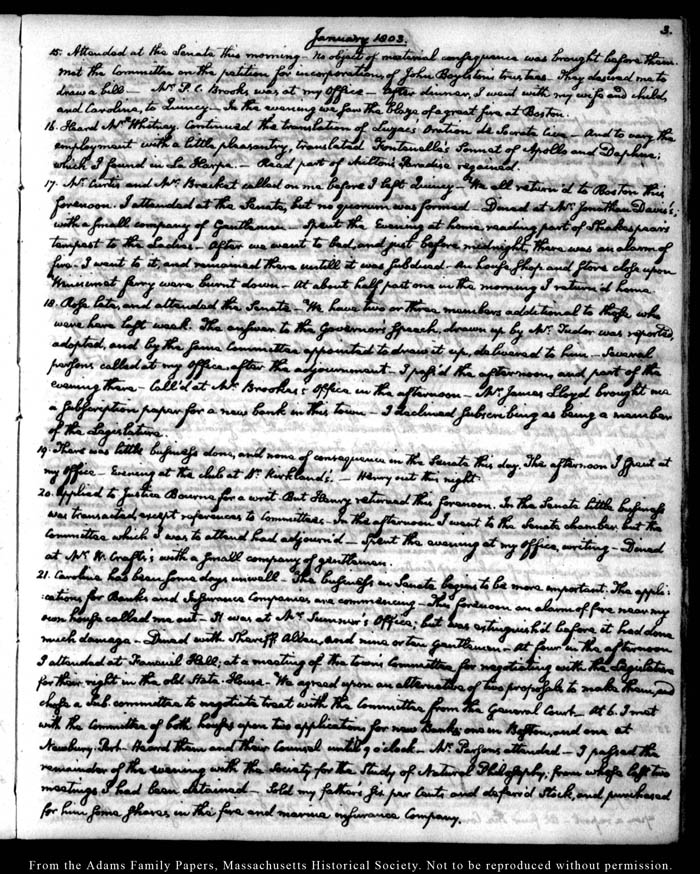 3.
January 1803.
15. Attended at the Senate this morning. No object of material consequence was brought before them.
Met the Committee on the petition for incorporation, of John Boylston's trustees. They desired me to
draw a bill— Mr. P. C. Brooks was at my Office— After dinner, I went with my wife and child,
and Caroline, to Quincy— In the evening we saw the blaze of a great fire at Boston.
16. Heard Mr. Whitney. Continued the translation of Luzac's Oration de Socrate Cive— And to vary the
employment with a little pleasantry, translated Fontenelle's Sonnet of Apollo and Daphne;
which I found in La Harpe.— Read part of Milton's Paradise regained.
17. Mr. Curtis and Mr. Bracket called on me before I left Quincy— We all return'd to Boston this
forenoon. I attended at the Senate, but no quorum was formed— Dined at Mr. Jonathan Davis's;
with a small company of Gentlemen— Spent the Evening at home, reading part of Shakespear's
tempest to the Ladies— After we went to bed, and just before midnight, there was an alarm of
fire. I went to it, and remained there untill it was subdued— An house, shop, and store close upon
Winnisimet ferry were burnt down— At about half past one in the morning I return'd home.
18. Rose late, and attended the Senate— We have two or three members additional to those who
were here last week. The answer to the Governor's Speech, drawn up by Mr. Tudor was reported,
adopted, and by the same Committee appointed to draw it up, delivered to him— Several
persons called at my Office, after the adjournment— I pass'd the afternoon, and part of the
evening there— Call'd at Mr. Brooks's Office in the afternoon— Mr. James Lloyd brought me
a subscription paper for a new bank in this town— I declined subscribing as being a member
of the Legislature.
19. There was little business done, and none of consequence in the Senate this day. The afternoon I spent at
my Office— Evening at the club at Dr. Kirkland's.— Henry out this night.
20. Applied to Justice Bourne for a writ. But Henry returned this forenoon. In the Senate little business
was transacted, except references to Committees— In the afternoon I went to the Senate chamber but the
Committee which I was to attend had adjourn'd— Spent the evening at my Office, writing— Dined
at Mr. W. Crafts's with a small company of gentlemen.
21. Caroline has been some days unwell— The business in Senate begins to be more important. The appli-
:cations for Banks and Insurance Companies are commencing— This forenoon an alarm of fire near my
own house called me out— It was at Mr. Sumner's Office; but was extinguish'd before it had done
much damage— Dined with Sheriff Allen, and nine or ten Gentlemen— At four in the afternoon
I attended at Faneuil Hall; at a meeting of the town Committee for negotiating with the Legislature
for their right in the old State-House. We agreed upon an alternative of two proposals to make them, and
chose a Sub-committee to negotiate treat with the Committee from the General Court— At 6. I met
with the Committee of both houses upon two applications for new Banks; one in Boston, and one at
Newbury-Port— Heard them and their Counsel untill 9 o'clock— Mr. Parsons attended— I passed the
remainder of the evening with the Society for the Study of Natural Philosophy, from whose last two
meetings I had been detained— Sold my father's six per Cents and deferr'd Stock, and purchased
for him some shares, in the fire and marine insurance Company.
From the Adams Family Papers, Massachusetts Historical Society. Not to be reproduced without permission.